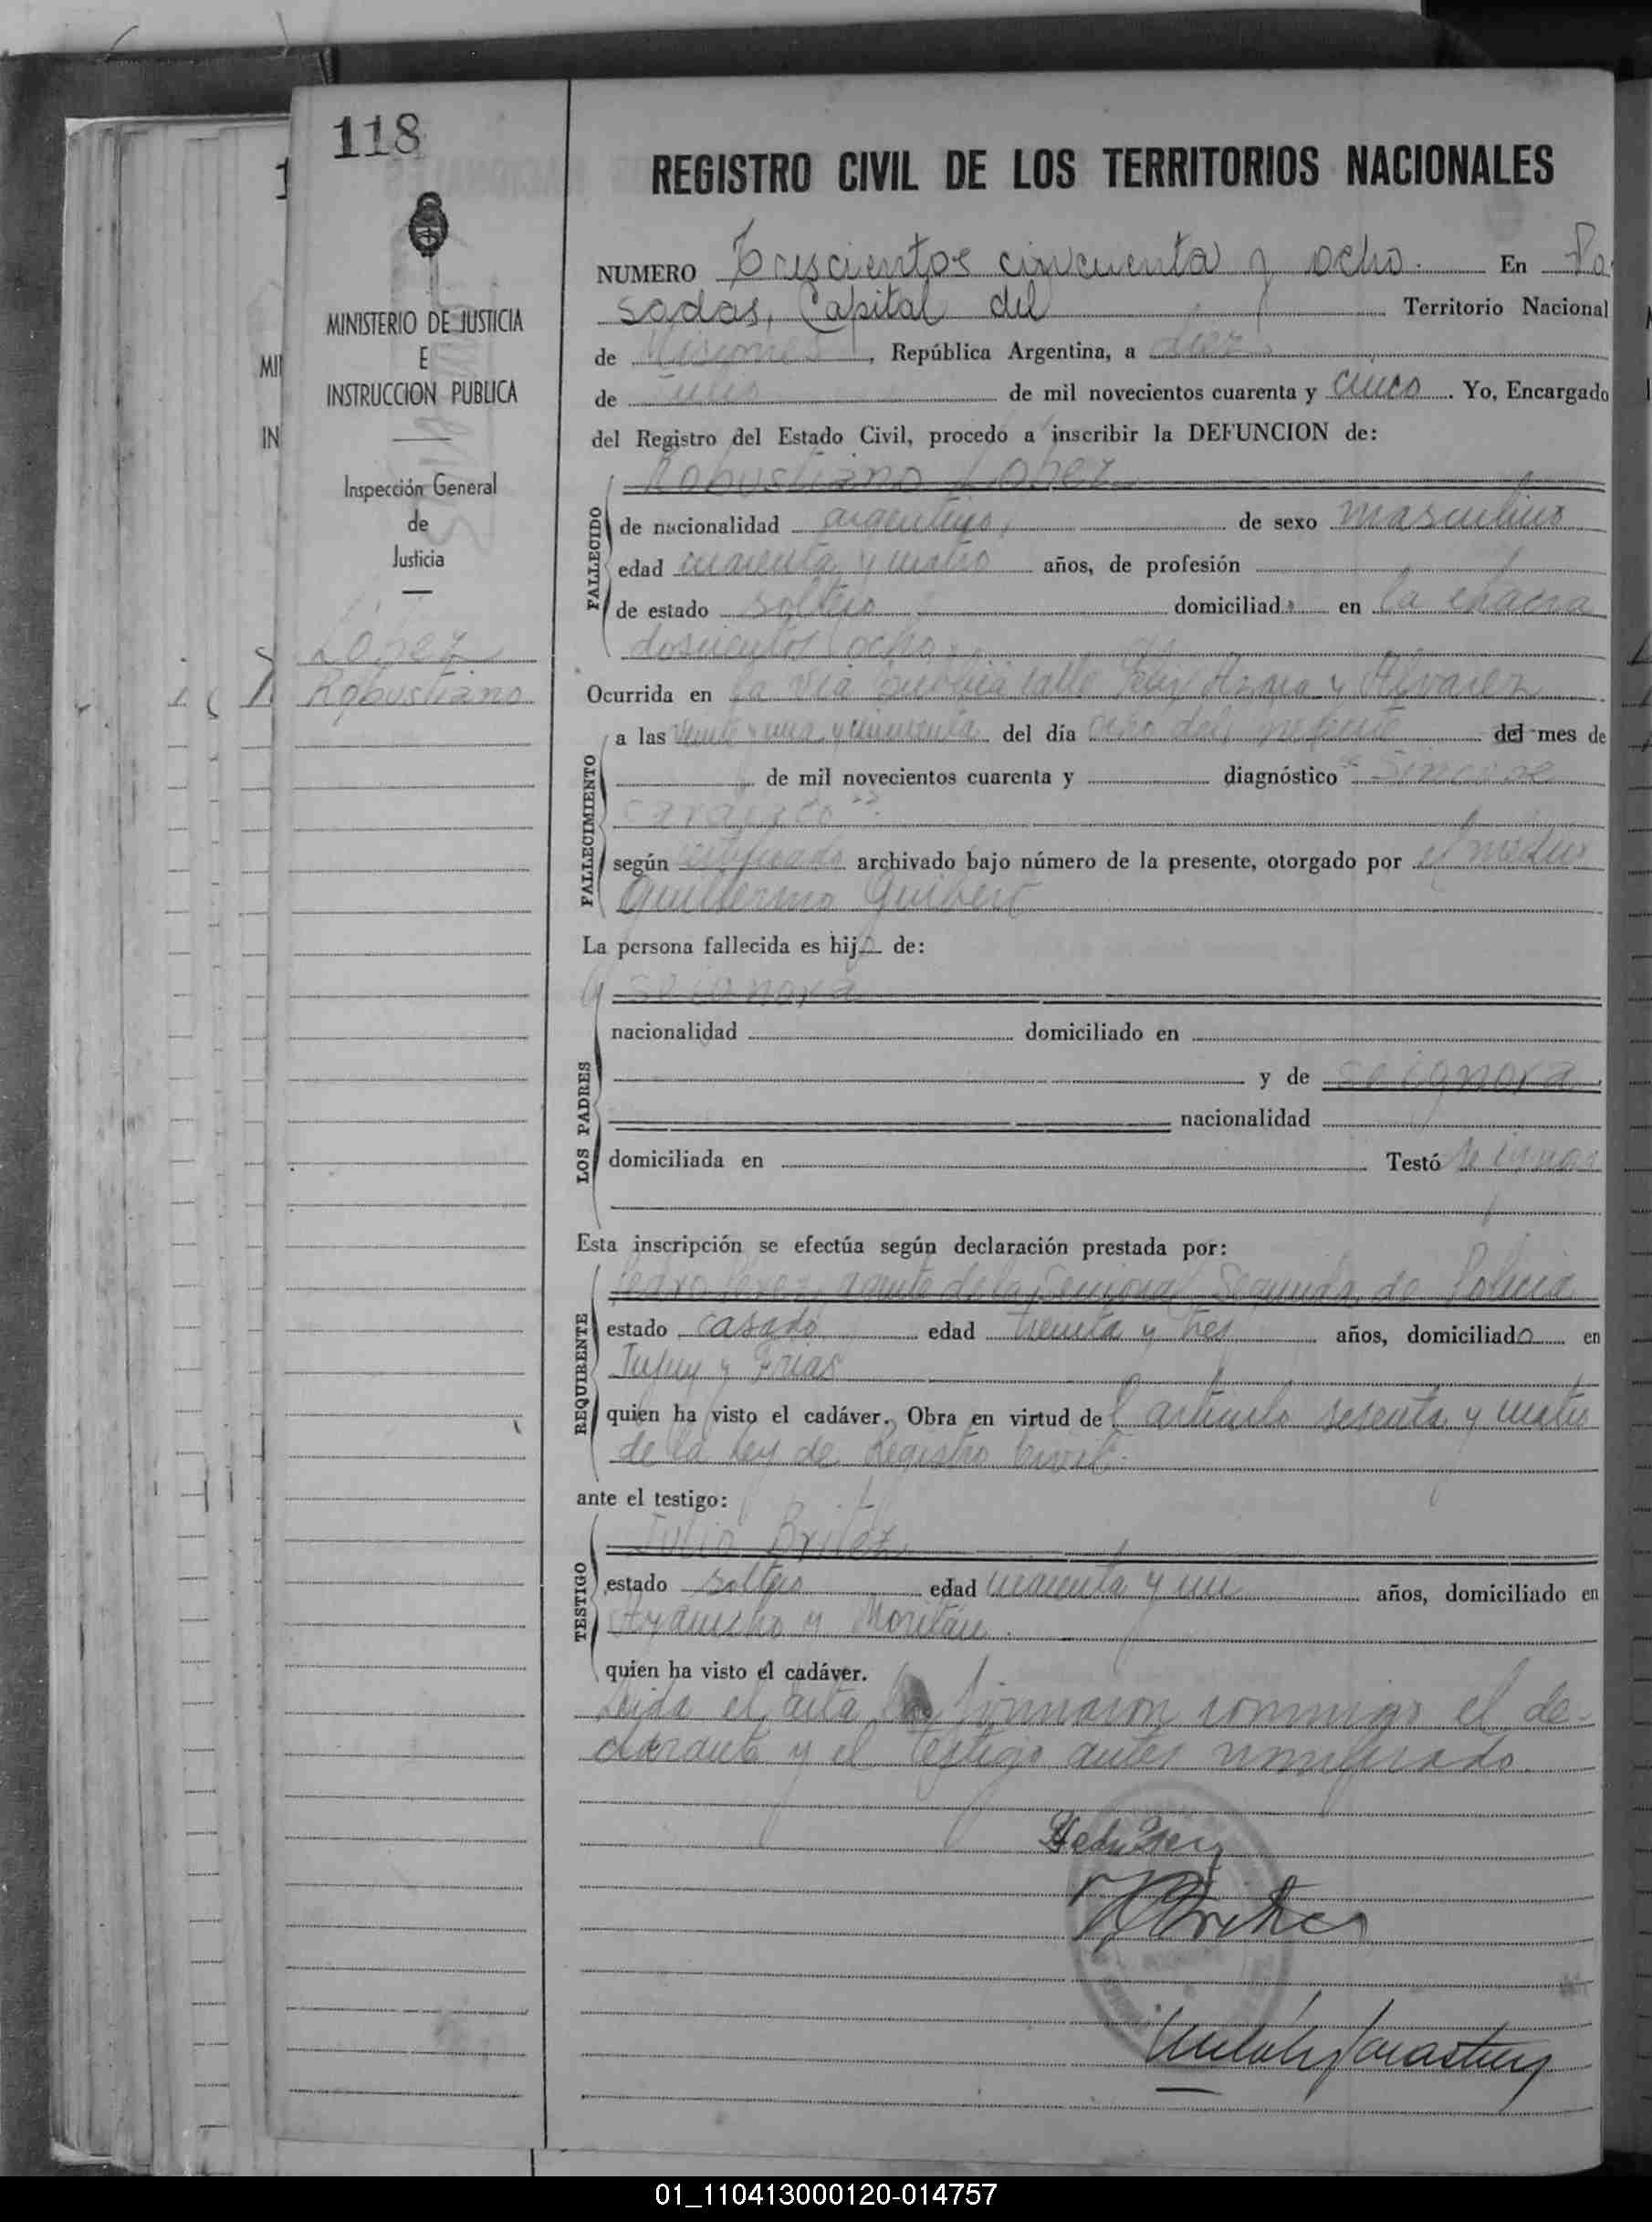 118
REGISTRO CIVIL DE LOS TERRITORIOS NACIONALES
MINISTERIO DE JUSTICIA
E
INSTRUCCION PUBLICA
Inspección General
de
Justicia
Lopez
Robustiano
NUMERO Trescientos cincuenta y ocho. En Po
sadas, Capital del Territorio Nacional
de Misiones, República Argentina, a diez
de Julio de mil novecientos cuarenta y cinco. Yo, Encargado
del Registro del Estado Civil, procedo a inscribir la DEFUNCION de:
Robustiano Lopez
FALLECIDO
de nacionalidad argentino, de sexo masculino
edad cuarenta y cuatro años, de profesión
de estado soltero domiciliado en la chacra
doscientos ocho
Ocurrida en la via publica calle Felix Azara y Alvarez
FALLECIMIENTO
a las veinte y una y cincuenta del día ocho del presente del mes de
de mil novecientos cuarenta y diagnóstico "Sincope
cardiaco"
según certificado archivado bajo número de la presente, otorgado por el medico
Guillermo Guibert
La persona fallecida es hijo de:
LOS PADRES
se ignora
nacionalidad domiciliado en
y de se ignora
nacionalidad
domiciliada en Testó se ignora
Esta inscripción se efectúa según declaración prestada por:
REQUIRENTE
Pedro Perez, agente de la Seccional Segunda de Policia
estado casado edad treinta y tres años, domiciliado en
Jujuy y Frias
quien ha visto el cadáver. Obra en virtud del articulo sesenta y cuatro
de la Ley de Registro Civil.
ante el testigo:
TESTIGO
Julio Britez
estado soltero edad cuarenta y un años, domiciliado en
Ayacucho y Moritán.
quien ha visto el cadáver.
Leida el acta la firmaron conmigo el de-
clarante y el testigo antes nombrado.
Pedro Perez
J Britez
01_110413000120-014757